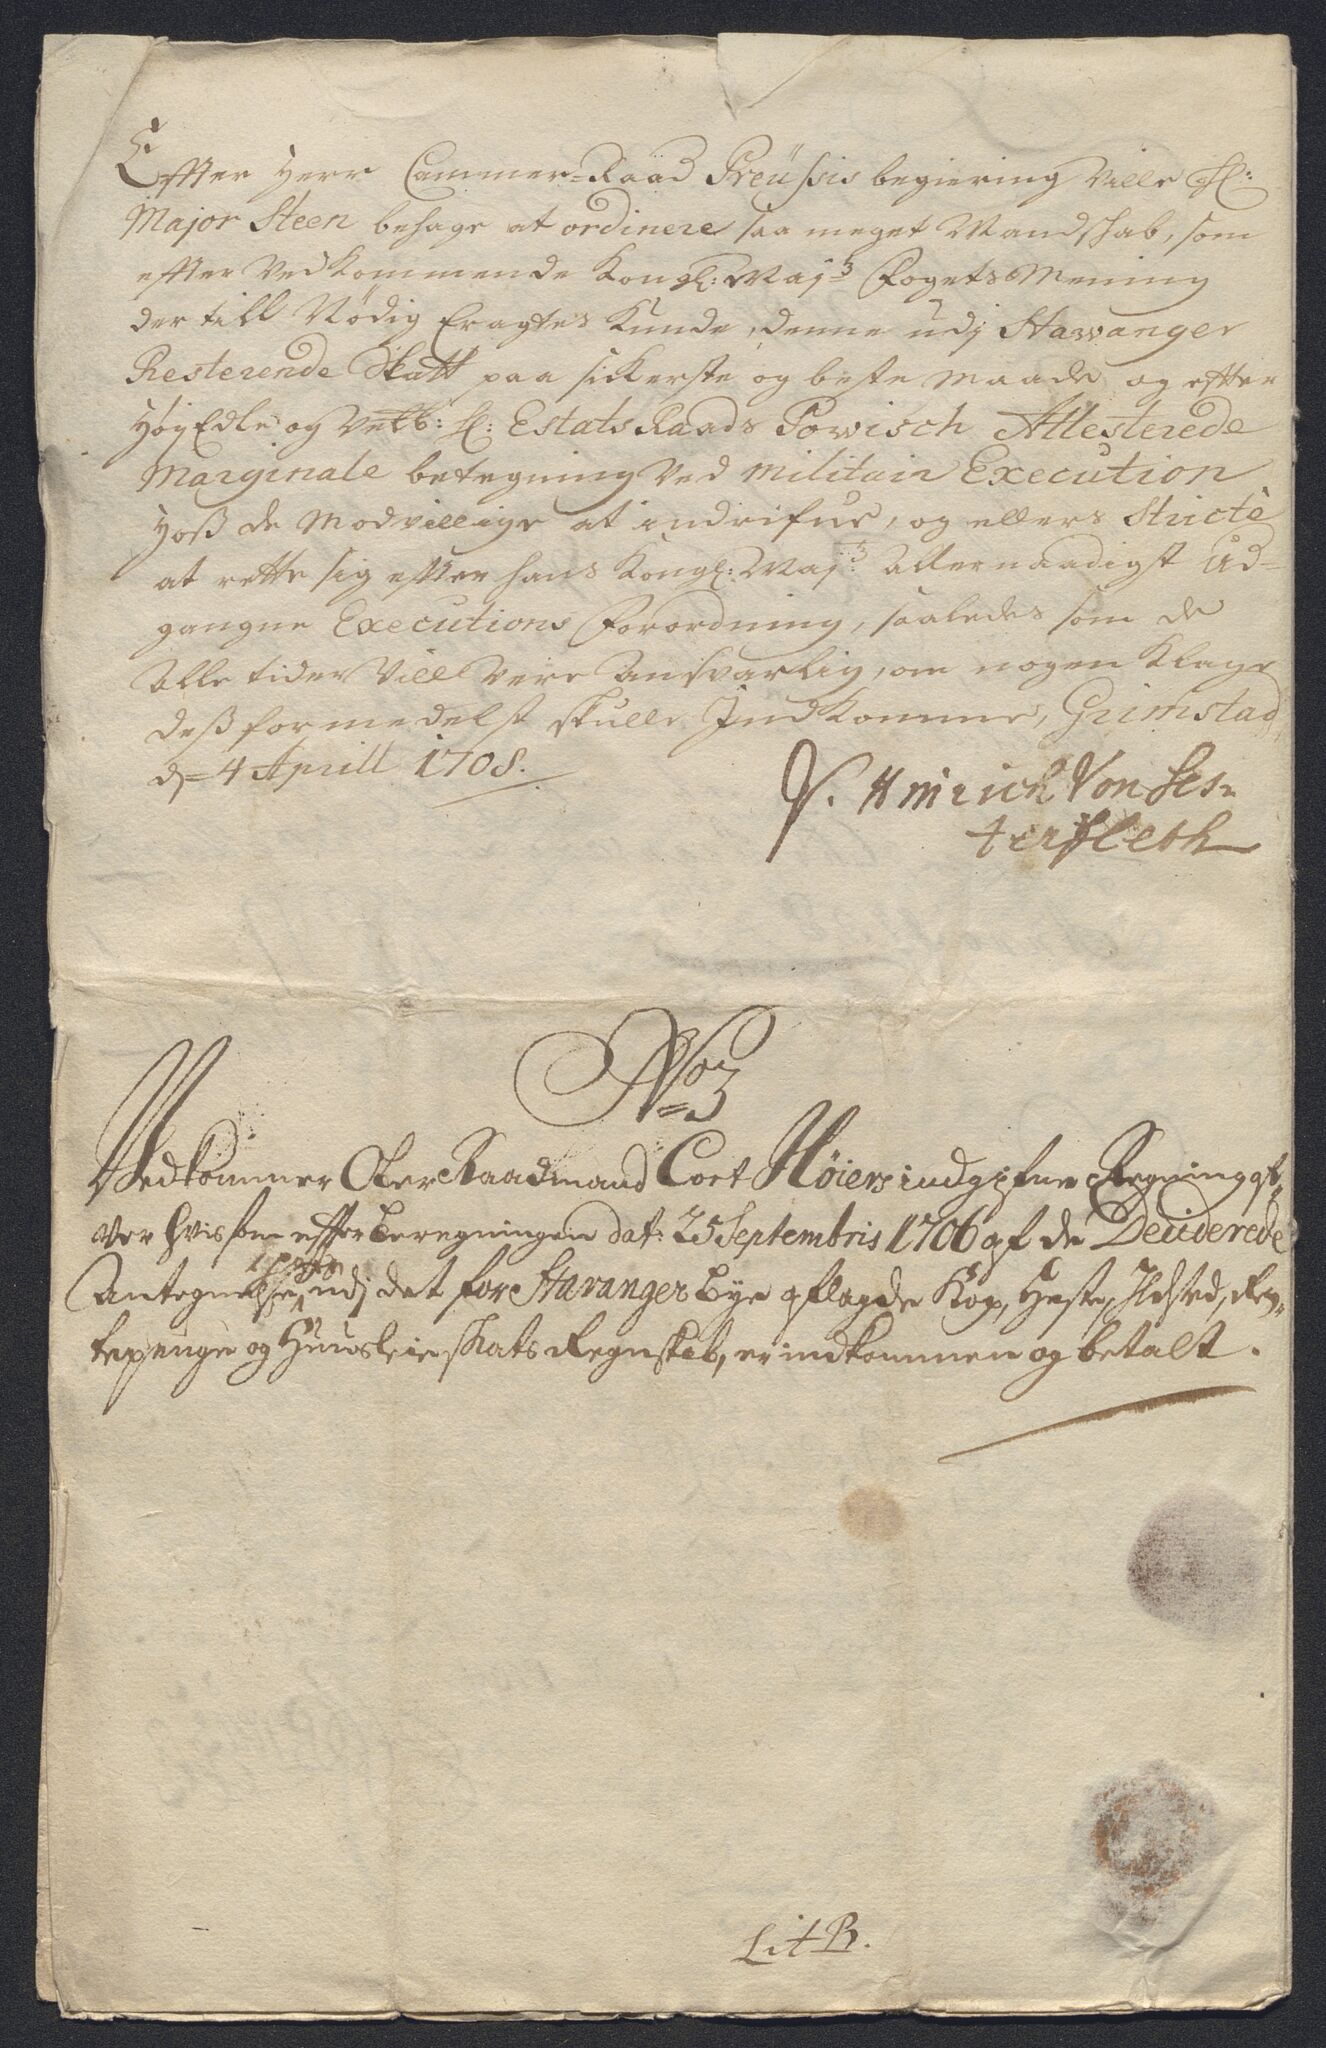 Effter Herr Cammer-Raad Preüssis begiering Ville Hl:
Major Steen behage at ordinere saa meget Mandskab, som
effter Vedkommende Kongl: Maj: Fogets Mening
der till Nödig Eragtes Kunde, denne udj Stawanger
Resterende Skatt paa sickerste og beste maade og effter
HøyEdle og Velb: Hl: Estats Raads Powisch Attesterede
Marginale betegning Ved Militair Execution
hoß de Modvillige at indrifue, og ellers Stricte
at rette sig effter hans Kongl: Maj: allernaadigst Ud-
gangne Executions Forordning, saaledes som de
alle tider Vill Vere Ansvarlig, om nogen Klage
deß formedelst skulle Indkomme, Grimstad
d= 4 Aprill 1708.
V. Hinrich Von Ses=
terfleth
No 3
Vedkommer Ofer Raadmand Cort Høiers indgifne Regning
ver hvis som effter beregningen dat: 25 Septembris 1706 af de Deciderede
Antegnelser udj det for Stavanger bye aflagde Kop, Heste, Ildsted, Ren-
tepenge og Huusleie skats Regnskab, er indkommen og betalt.
Lit B.